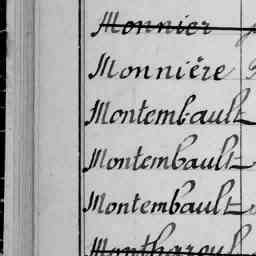 Monnier
Monnière
Montembault
Montembault
Montembault